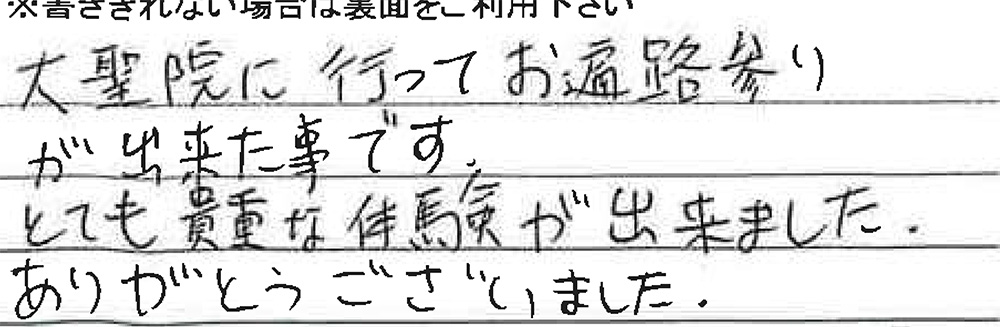 ※書ききれない場合は裏面をご利用下さい
大聖院に行ってお遍路参り
が出来た事です.
とても貴重な体験が出来ました.
ありがとうございました.